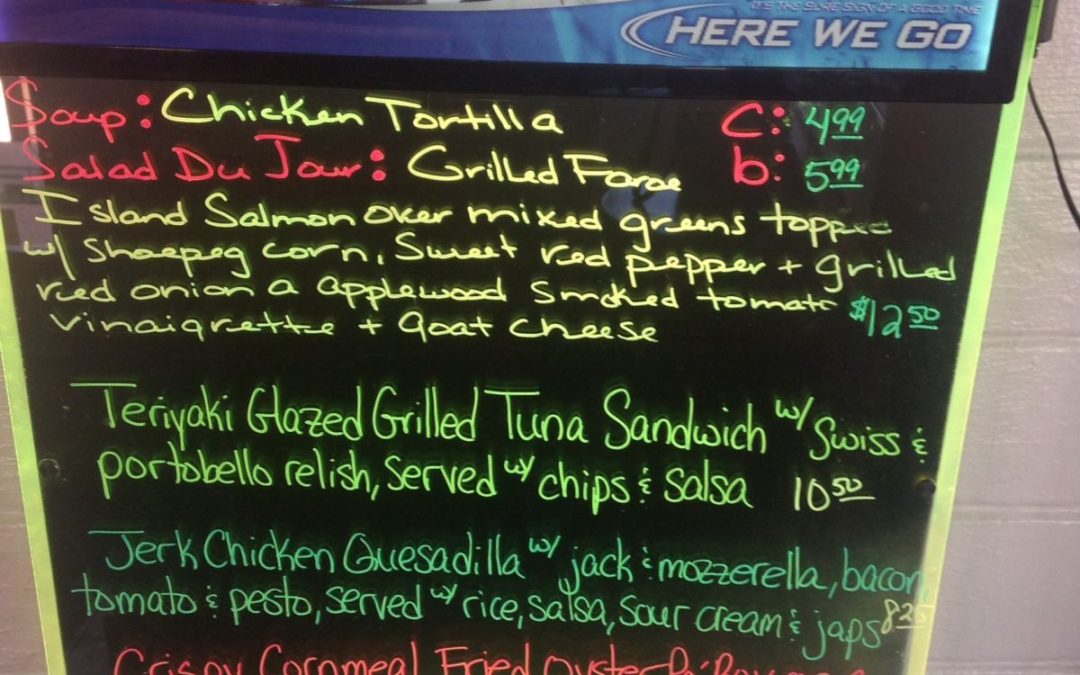 IT'S THE SURE SIGN OF A GOOD TIME
HERE WE GO
Soup: Chicken Tortilla C: 4.99
Salad Du Jour: Grilled Faroe b: 5.99
Island Salmon over mixed greens topped
w/ Shoepeg corn, Sweet red pepper + grilled
red onion a applewood smoked tomato $12.50
vinaigrette + goat cheese
Teriyaki Glazed Grilled Tuna Sandwich w/ Swiss &
portobello relish, served w/ chips & salsa 10.50
Jerk Chicken Quesadilla w/ jack & mozzerella, bacon,
tomato & pesto, served w/ rice, salsa, sour cream & japs 8.25
Crispy Cornmeal Fried Oyster